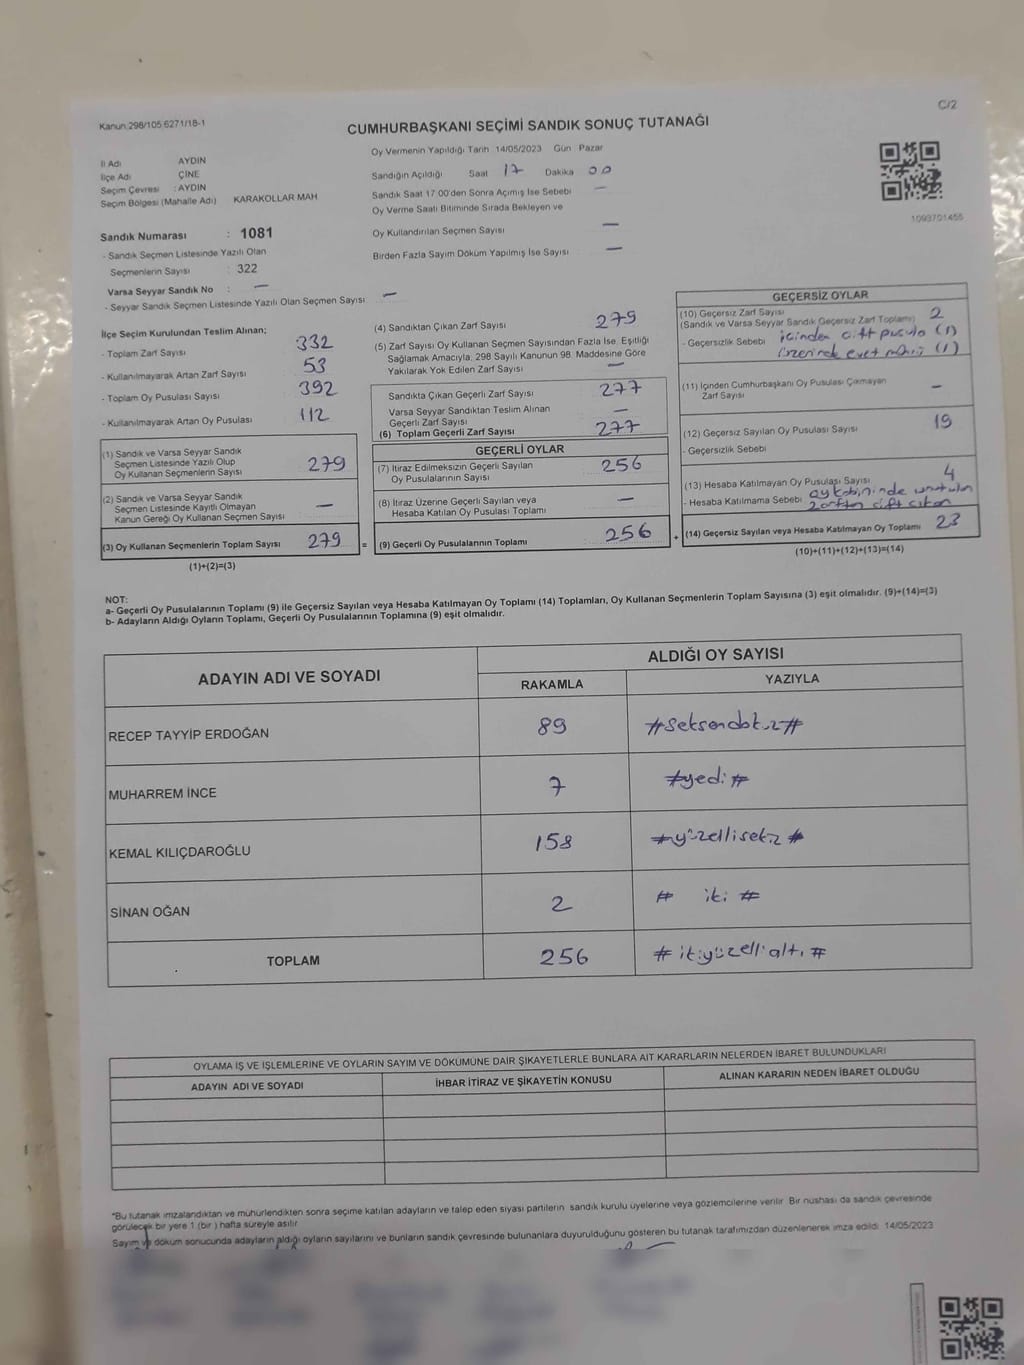 C/2
Kanun:298/105 6271/18-1
CUMHURBAŞKANI SEÇİMİ SANDIK SONUÇ TUTANAĞI
İl Adı AYDIN
İlçe Adı ÇİNE
Seçim Çevresi : AYDIN
Seçim Bölgesi (Mahalle Adı) KARAKOLLAR MAH
Oy Vermenin Yapıldığı Tarih 14/05/2023 Gün Pazar
Sandığın Açıldığı Saat 17 Dakika 00
Sandık Saat 17.00'den Sonra Açımış İse Sebebi —
Oy Verme Saati Bitiminde Sırada Bekleyen ve
Oy Kullandırılan Seçmen Sayısı —
Birden Fazla Sayım Döküm Yapılmış İse Sayısı —
1093701455
Sandık Numarası : 1081
- Sandık Seçmen Listesinde Yazılı Olan
Seçmenlerin Sayısı : 322
Varsa Seyyar Sandık No : —
- Seyyar Sandık Seçmen Listesinde Yazılı Olan Seçmen Sayısı —
İlçe Seçim Kurulundan Teslim Alınan;
- Toplam Zarf Sayısı 332
- Kullanılmayarak Artan Zarf Sayısı 53
- Toplam Oy Pusulası Sayısı 392
- Kullanılmayarak Artan Oy Pusulası 112
(1) Sandık ve Varsa Seyyar Sandık
Seçmen Listesinde Yazılı Olup
Oy Kullanan Seçmenlerin Sayısı 279
(2) Sandık ve Varsa Seyyar Sandık
Seçmen Listesinde Kayıtlı Olmayan
Kanun Gereği Oy Kullanan Seçmen Sayısı —
(3) Oy Kullanan Seçmenlerin Toplam Sayısı 279 =
(1)+(2)=(3)
(4) Sandıktan Çıkan Zarf Sayısı 279
(5) Zarf Sayısı Oy Kullanan Seçmen Sayısından Fazla İse, Eşitliği
Sağlamak Amacıyla, 298 Sayılı Kanunun 98. Maddesine Göre
Yakılarak Yok Edilen Zarf Sayısı —
Sandıkta Çıkan Geçerli Zarf Sayısı 277
Varsa Seyyar Sandıktan Teslim Alınan
Geçerli Zarf Sayısı —
(6) Toplam Geçerli Zarf Sayısı 277
GEÇERLİ OYLAR
(7) İtiraz Edilmeksizin Geçerli Sayılan
Oy Pusulasının Sayısı 256
(8) İtiraz Üzerine Geçerli Sayılan veya
Hesaba Katılan Oy Pusulası Toplamı —
(9) Geçerli Oy Pusulalarının Toplamı 256 +
GEÇERSİZ OYLAR
(10) Geçersiz Zarf Sayısı 2
(Sandık ve Varsa Seyyar Sandık Geçersiz Zarf Toplamı)
- Geçersizlik Sebebi içinden çift pusula (1)
üzerinde evet mührü (1)
(11) İçinden Cumhurbaşkanı Oy Pusulası Çıkmayan
Zarf Sayısı —
(12) Geçersiz Sayılan Oy Pusulası Sayısı 19
- Geçersizlik Sebebi
(13) Hesaba Katılmayan Oy Pusulası Sayısı 4
- Hesaba Katılmama Sebebi oy kabininde unutulan
zarftan çift çıkan
(14) Geçersiz Sayılan veya Hesaba Katılmayan Oy Toplamı 23
(10)+(11)+(12)+(13)=(14)
NOT:
a- Geçerli Oy Pusulalarının Toplamı (9) ile Geçersiz Sayılan veya Hesaba Katılmayan Oy Toplamı (14) Toplamları, Oy Kullanan Seçmenlerin Toplam Sayısına (3) eşit olmalıdır. (9)+(14)=(3)
b- Adayların Aldığı Oyların Toplamı, Geçerli Oy Pusulalarının Toplamına (9) eşit olmalıdır.
ADAYIN ADI VE SOYADI ALDIĞI OY SAYISI
RAKAMLA YAZIYLA
RECEP TAYYİP ERDOĞAN 89 #seksendokuz#
MUHARREM İNCE 7 #yedi#
KEMAL KILIÇDAROĞLU 158 #yüzellisekiz#
SİNAN OĞAN 2 # iki #
TOPLAM 256 #ikiyüzellialtı#
OYLAMA İŞ VE İŞLEMLERİNE VE OYLARIN SAYIM VE DÖKÜMÜNE DAİR ŞİKAYETLERLE BUNLARA AİT KARARLARIN NELERDEN İBARET BULUNDUKLARI
ADAYIN ADI VE SOYADI İHBAR İTİRAZ VE ŞİKAYETİN KONUSU ALINAN KARARIN NEDEN İBARET OLDUĞU
*Bu tutanak imzalandıktan ve mühürlendikten sonra seçime katılan adayların ve talep eden siyasi partilerin sandık kurulu üyelerine veya gözlemcilerine verilir. Bir nüshası da sandık çevresinde
görülecek bir yere 1 (bir ) hafta süreyle asılır
Sayım ve döküm sonucunda adayların aldığı oyların sayılarını ve bunların sandık çevresinde bulunanlara duyurulduğunu gösteren bu tutanak tarafımızdan düzenlenerek imza edildi. 14/05/2023